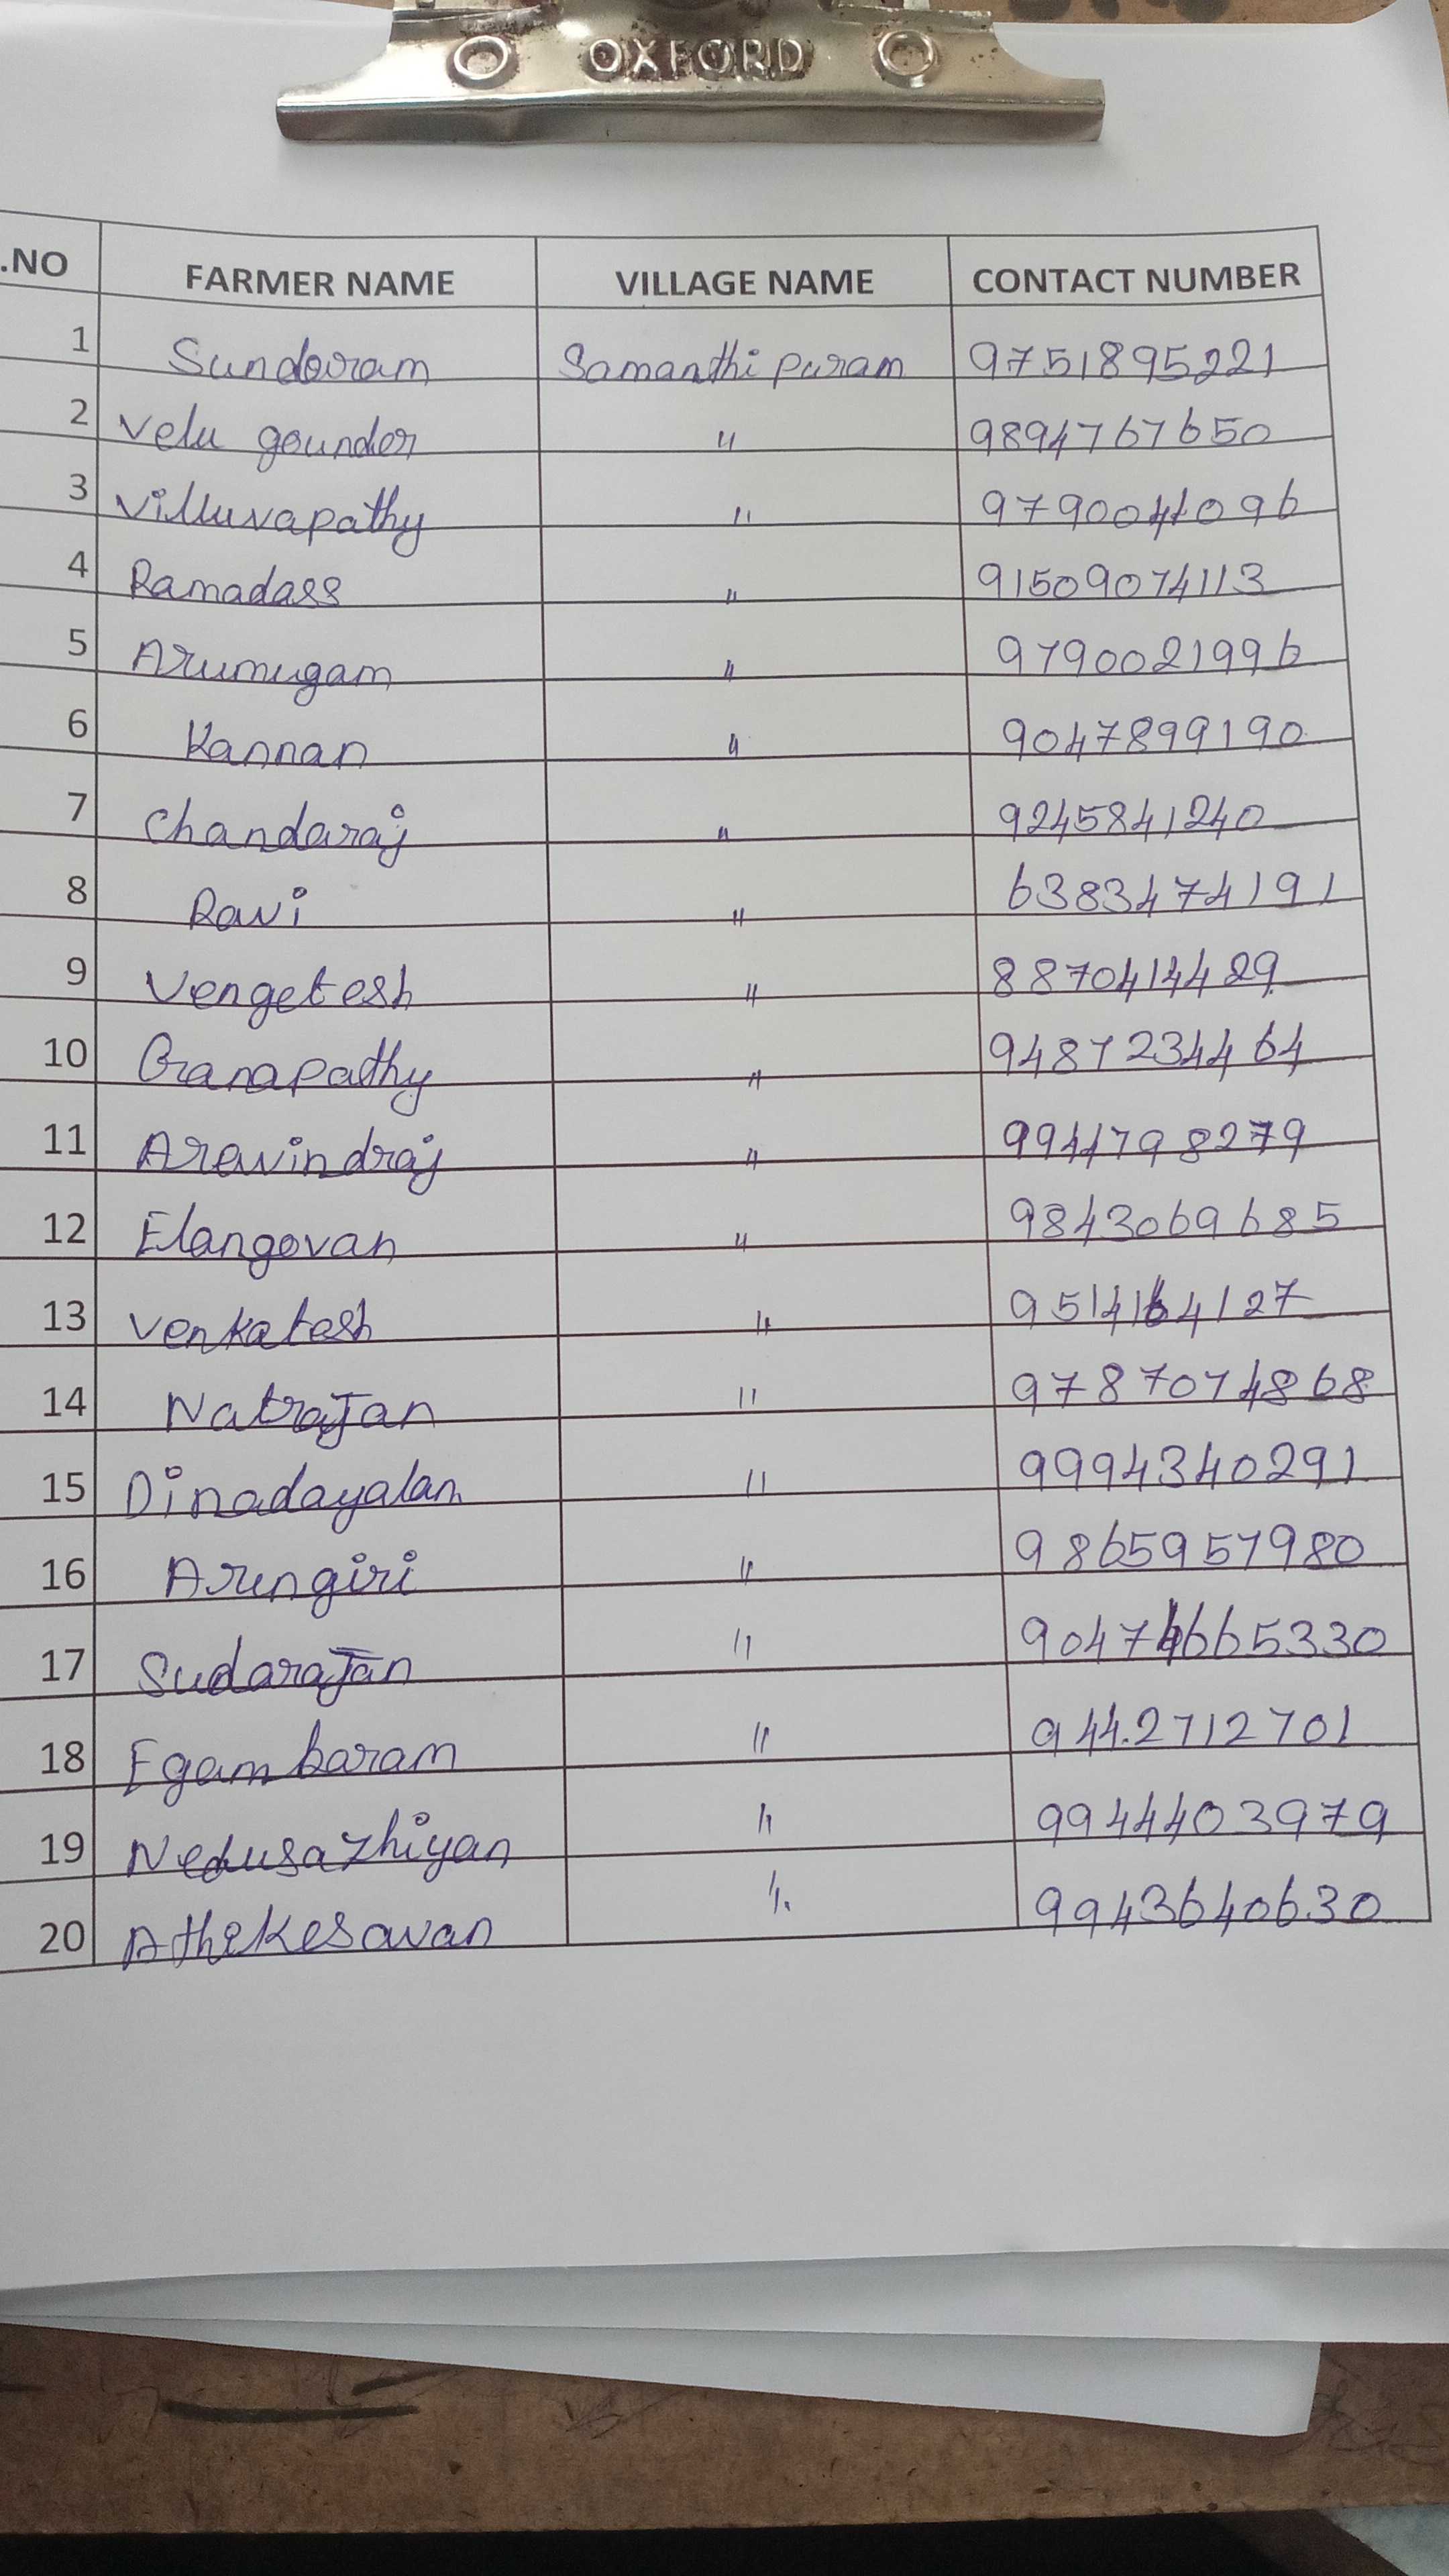 OXFORD
.NO FARMER NAME VILLAGE NAME CONTACT NUMBER
1 Sundaram Samanthi puram 9751895221
2 Velu gounder " 9894767650
3 Villuvapathy " 9790041096
4 Ramadass " 91509074113
5 Arumugam " 9790021996
6 Kannan " 9047899190
7 Chandaraj " 9245841240
8 Ravi " 6383474191
9 Vengetesh " 8870414429
10 Ganapathy " 9487234464
11 Aravindraj " 9944798279
12 Elangovan " 9843069685
13 Venkatesh "
14 Natrajan " 9787074868
15 Dinadayalan " 9994340291
16 Arungiri " 9865957980
17 Sudarajan "
18 Egambaram " 944.2712701
19 Nedusazhiyan " 9944403979
20 Athikesavan " 9943640630